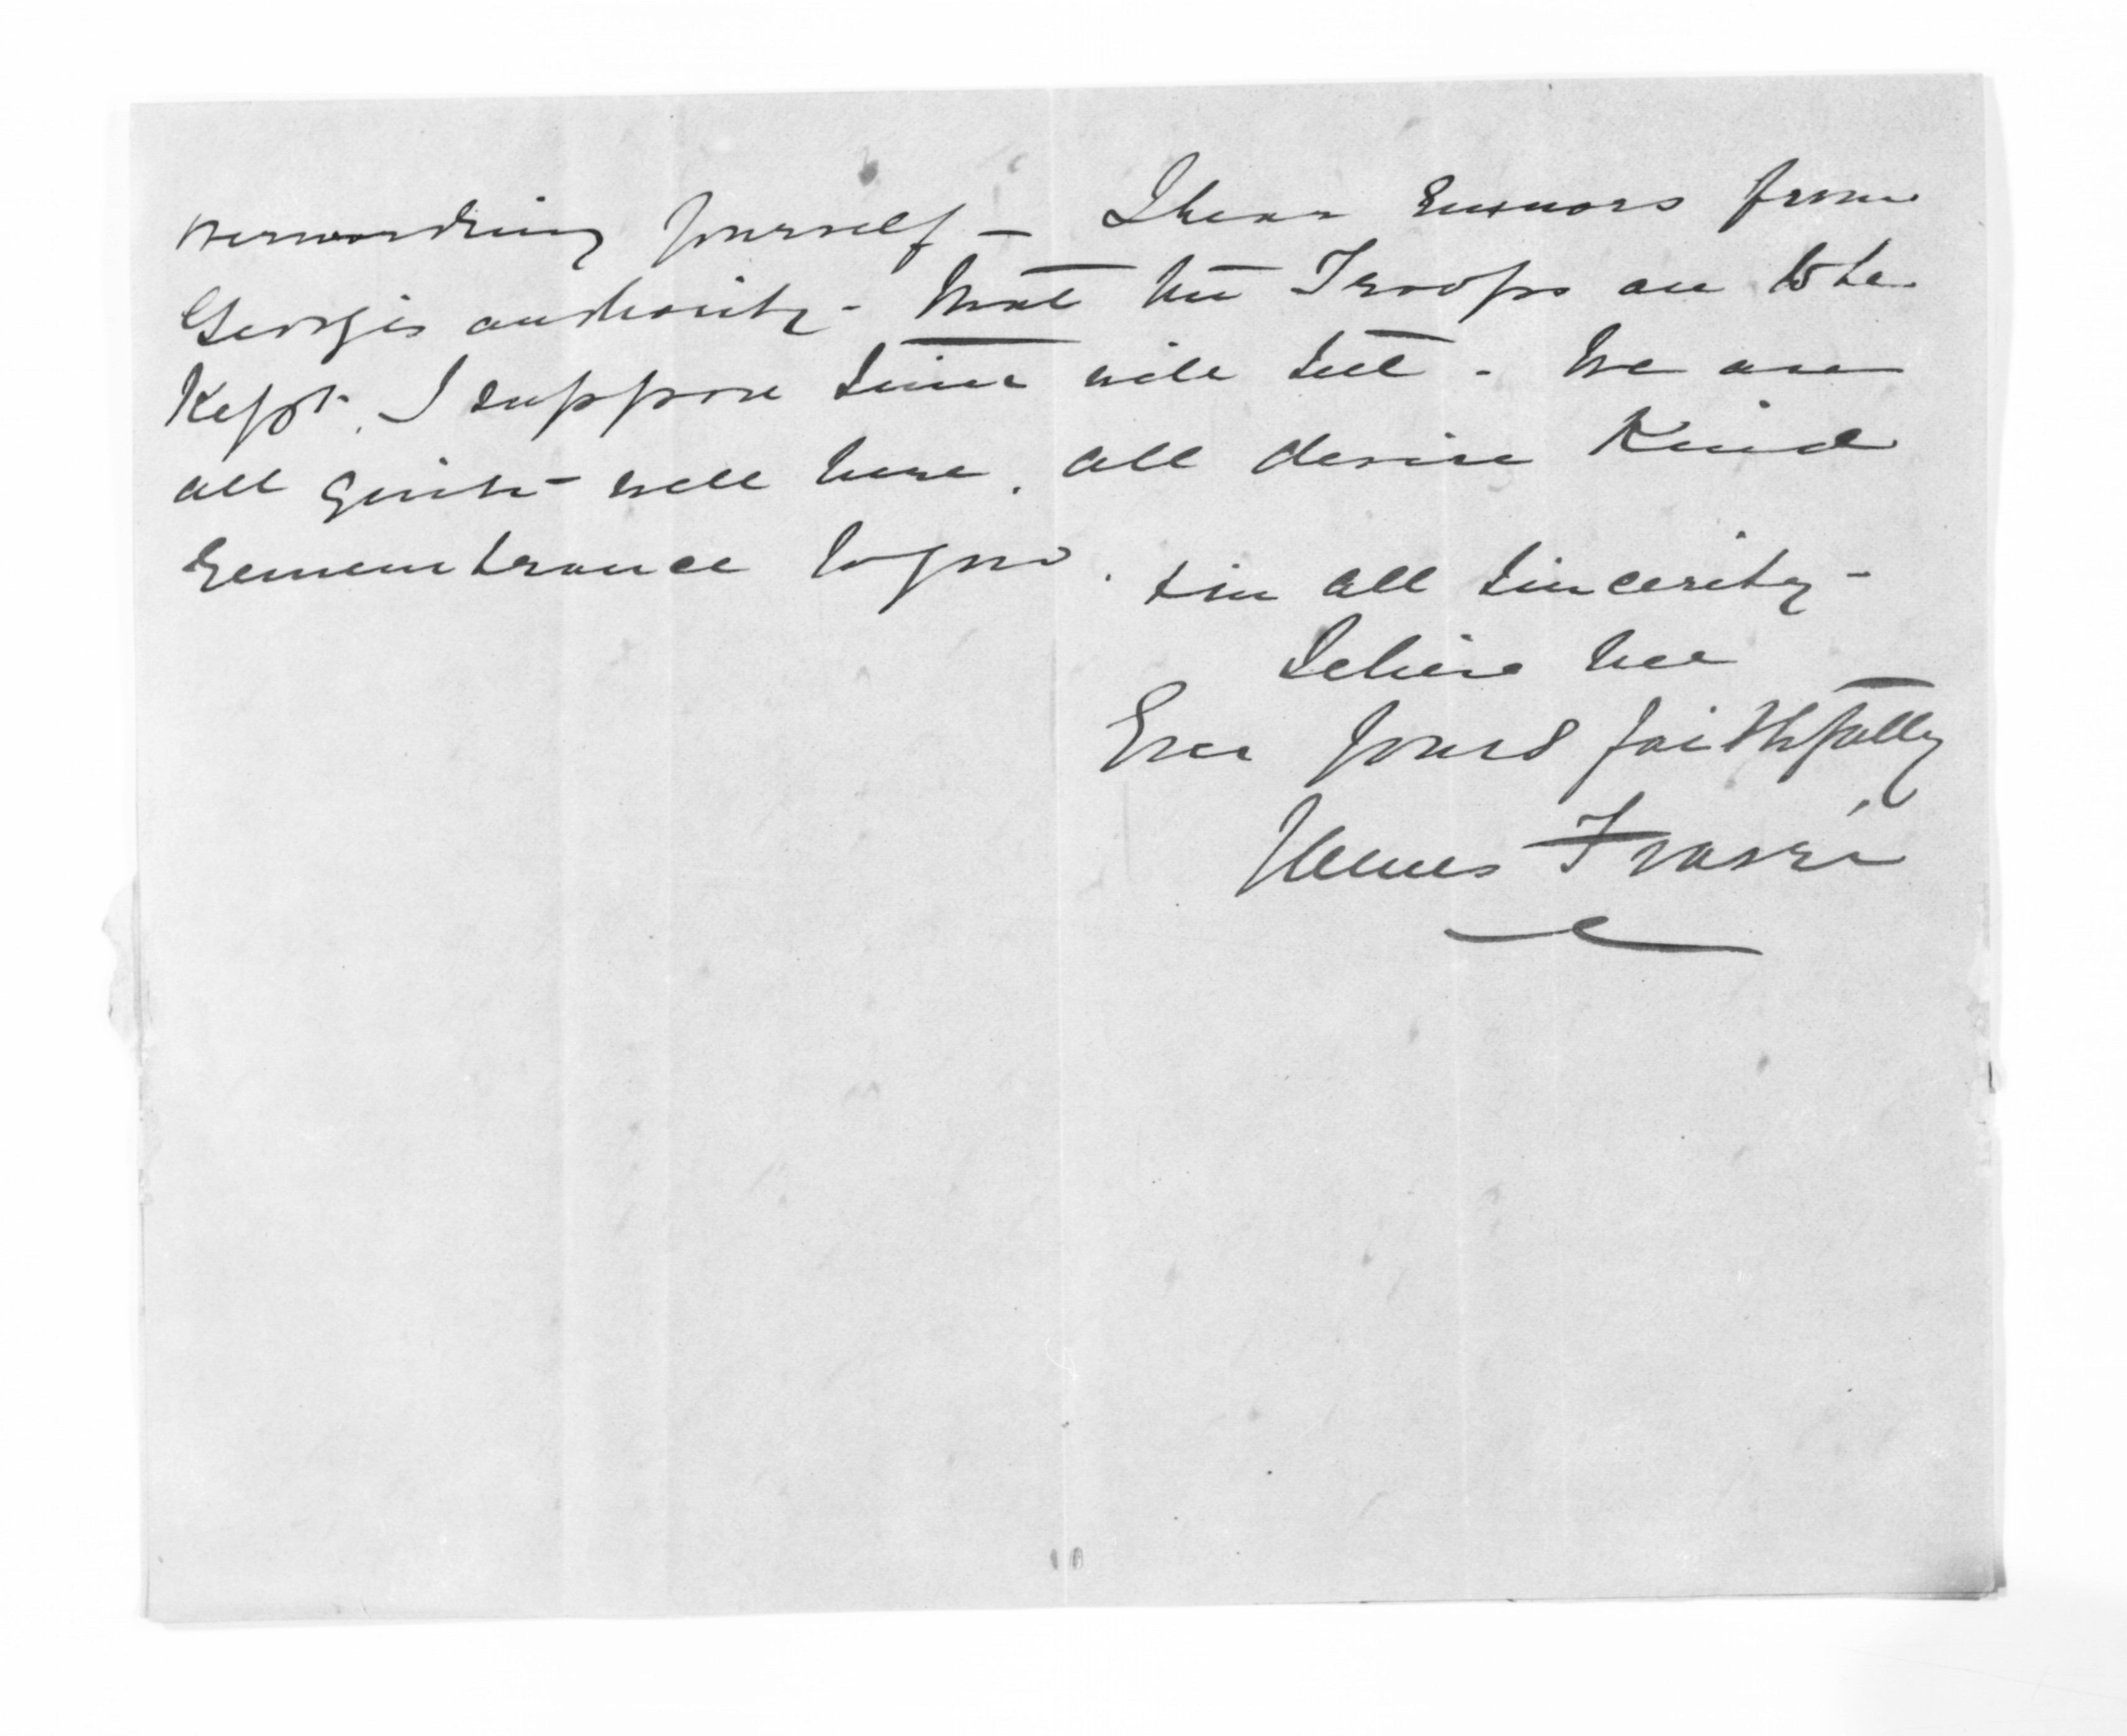 overworking yourself - I hear rumors from
Georges authority - that the Troops are to be
Kept. I suppose time will tell - We are
all quite well here. all desire Kind
remembrance to you. & in all sincerity -
believe me
Ever yours faithfully
James Fraser